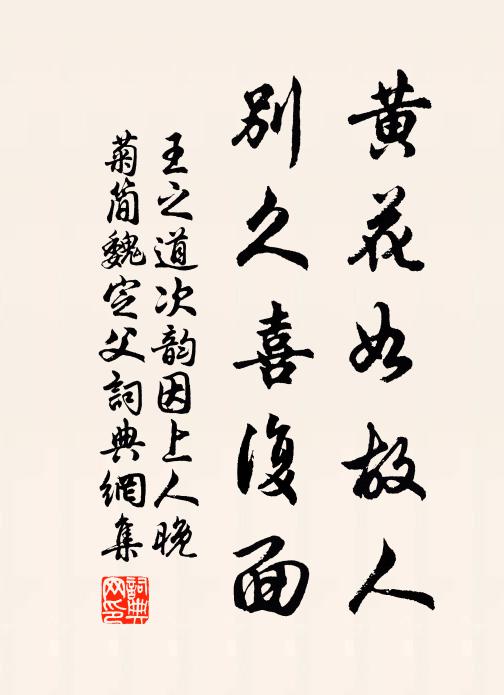 黄花如故人
别久喜復面
王之道次韵因上人晚
菊简魏定父詞典網集
詞典网印